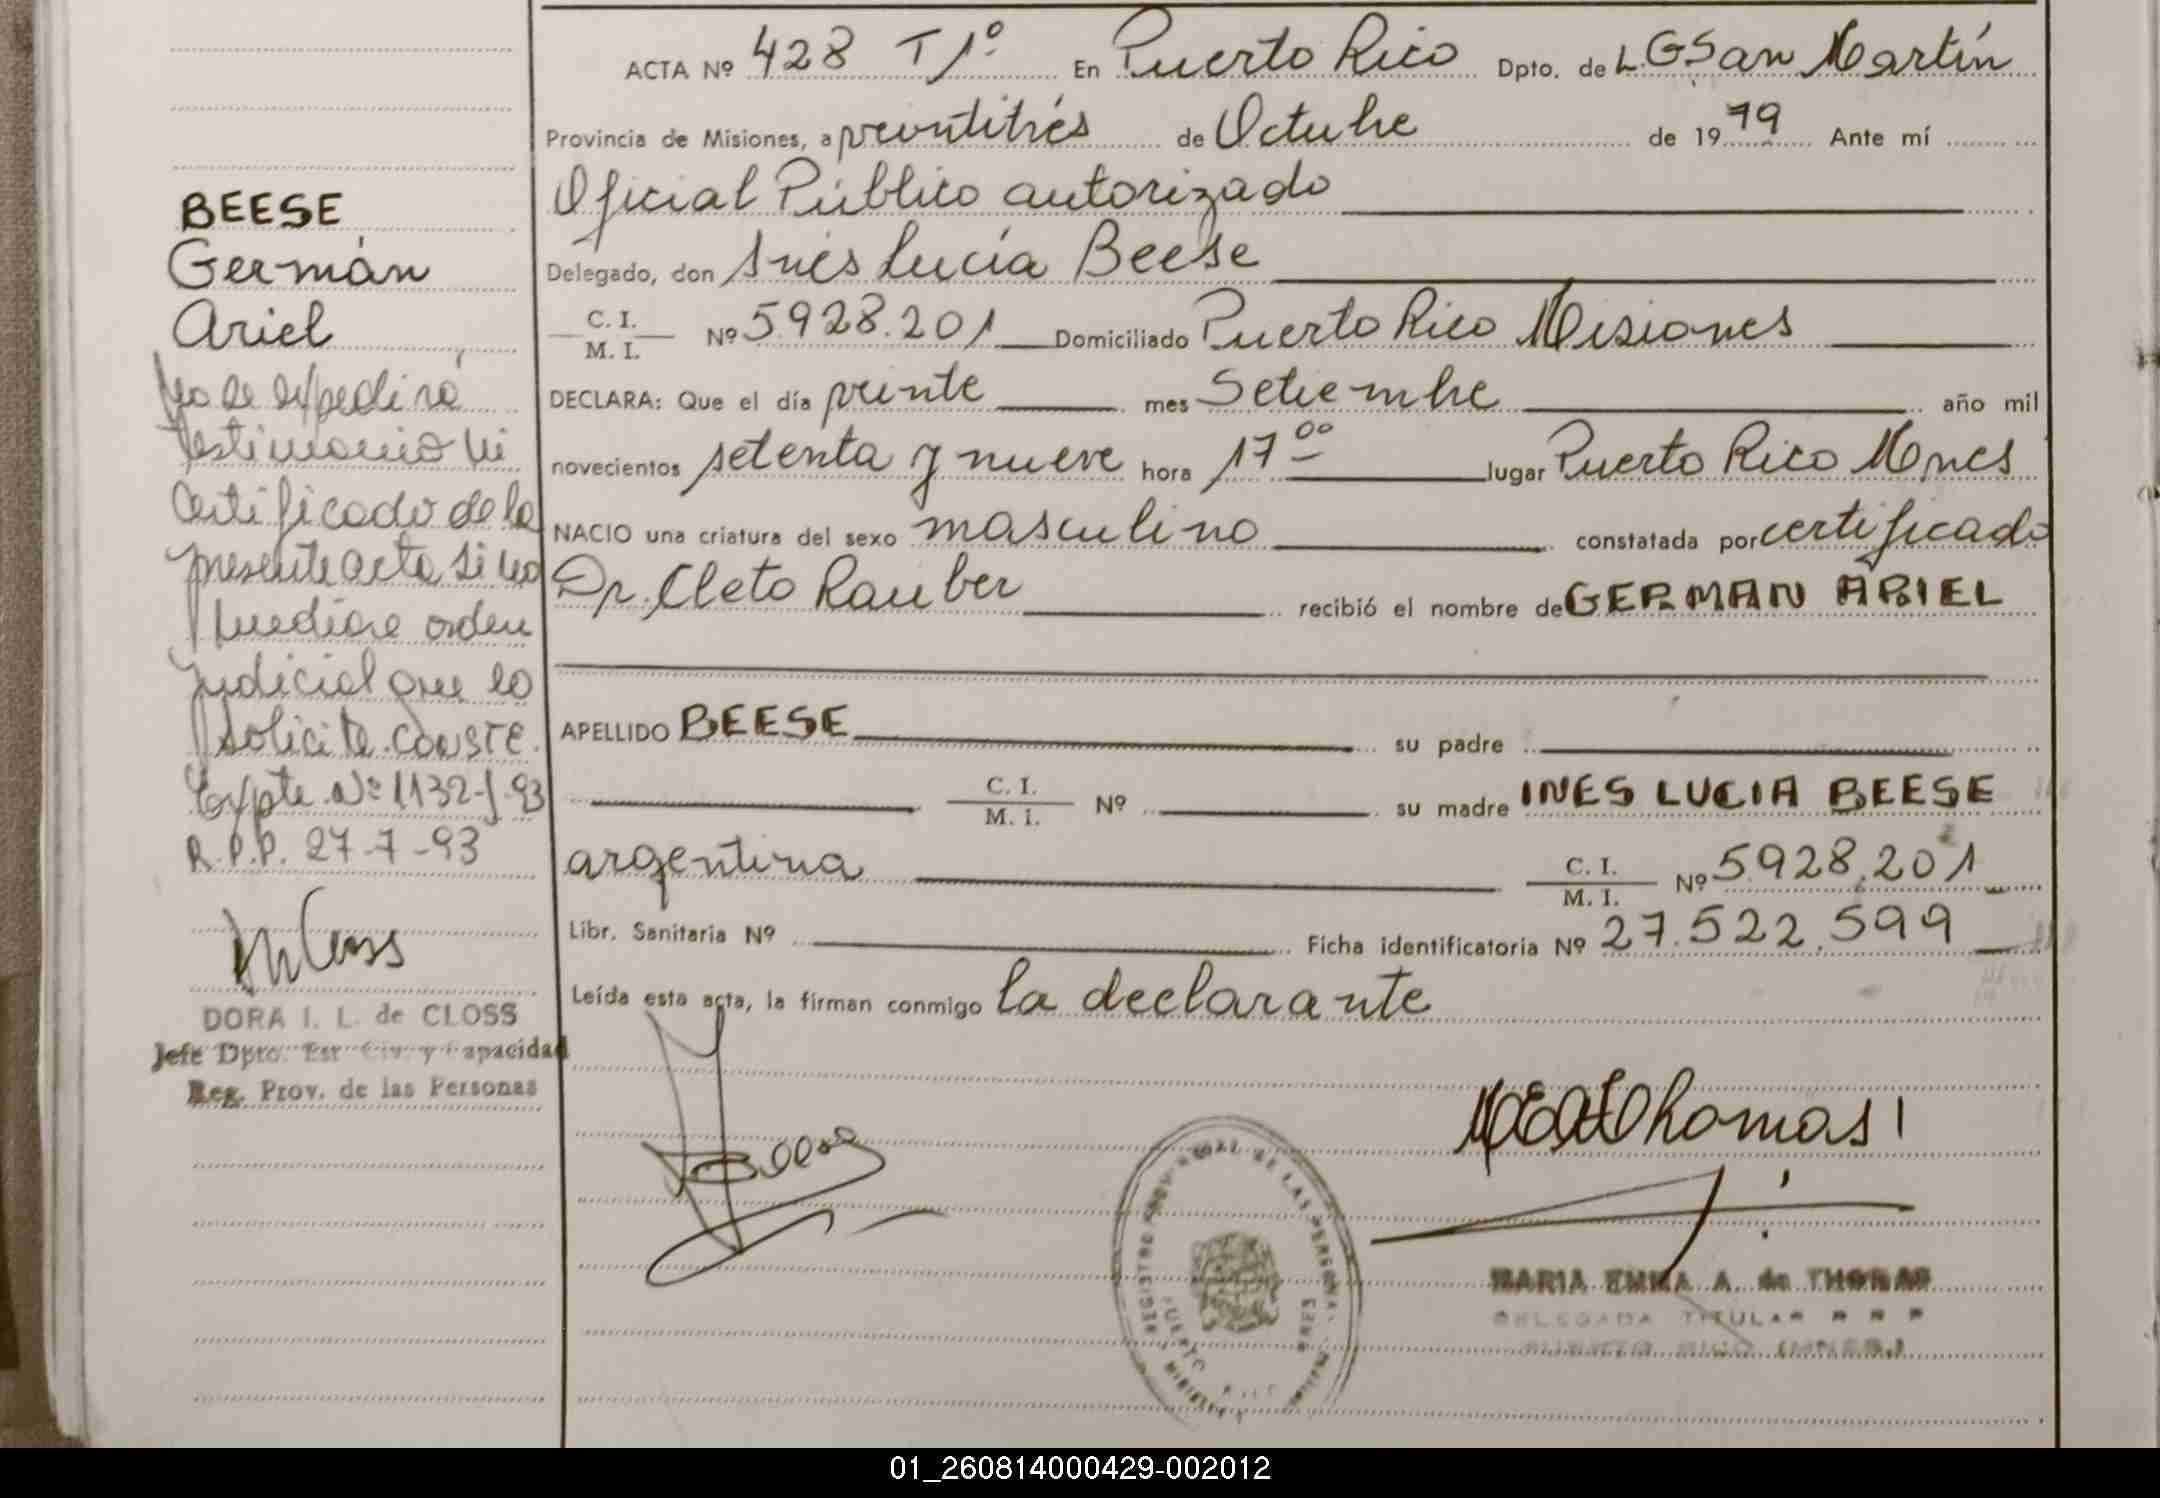 ACTA Nº 428 T 1º En Puerto Rico Dpto. de L.G San Martín
Provincia de Misiones, a veintitrés de Octubre de 1979 Ante mí
Oficial Público autorizado
Delegado, don Inés Lucía Beese
C. I. / M. I. Nº 5.928.201 Domiciliado Puerto Rico Misiones
DECLARA: Que el día veinte mes Setiembre año mil
novecientos setenta y nueve hora 17 00 lugar Puerto Rico Mnes
NACIO una criatura del sexo masculino constatada por certificado
Dr. Cleto Rauber recibió el nombre de GERMAN ARIEL
APELLIDO BEESE su padre
C. I. / M. I. Nº su madre INES LUCIA BEESE
argentina C. I. / M. I. Nº 5.928.201
Libr. Sanitaria Nº Ficha identificatoria Nº 27.522.599
Leída esta acta, la firman conmigo la declarante
BEESE
Germán
Ariel
No se expedirá
testimonio ni
certificado de la
presente acta si no
mediare orden
judicial que lo
solicite. conste.
Expte. Nº 1132-J-93
R.P.P. 27-7-93
DORA I. L. de CLOSS
Jefe Dpto. Est. Civ. y Capacidad
Reg. Prov. de las Personas
Beese
MEAdeThomas
MARIA EMMA A. de THOMAS
DELEGADA TITULAR R P P
PUERTO RICO (MNES.)
REGISTRO PROVINCIAL DE LAS PERSONAS
PUERTO RICO
01_260814000429-002012